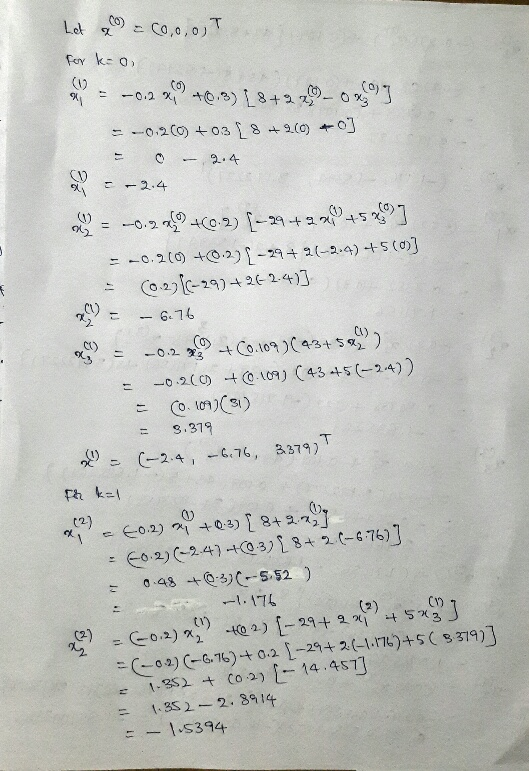 Let x^(0) = (0,0,0)^T
For k=0,
x_1^(1) = -0.2 x_1^(0) + (0.3) [8+2 x_2^(0) - 0 x_3^(0)]
= -0.2(0) + 0.3 [8 + 2(0) + 0]
= 0 - 2.4
x_1^(1) = -2.4
x_2^(1) = -0.2 x_2^(0) + (0.2) [-29 + 2 x_1^(1) + 5 x_3^(0)]
= -0.2(0) + (0.2) [-29 + 2(-2.4) + 5(0)]
= (0.2) [(-29) + 2(-2.4)]
x_2^(1) = -6.76
x_3^(1) = -0.2 x_3^(0) + (0.109) (43 + 5 x_2^(1))
= -0.2(0) + (0.109) (43 + 5(-2.4))
= (0.109)(31)
= 3.379
x^(1) = (-2.4, -6.76, 3.379)^T
For k=1
x_1^(2) = (-0.2) x_1^(1) + 0.3) [8+2.x_2^(1)]
= (-0.2)(-2.4) + (0.3) [8 + 2(-6.76)]
= 0.48 + (0.3)(-5.52)
= -1.176
x_2^(2) = (-0.2) x_2^(1) + (0.2) [-29 + 2 x_1^(2) + 5 x_3^(1)]
= (-0.2)(-6.76) + 0.2 [-29 + 2(-1.176) + 5(3.379)]
= 1.352 + (0.2) [-14.457]
= 1.352 - 2.8914
= -1.5394